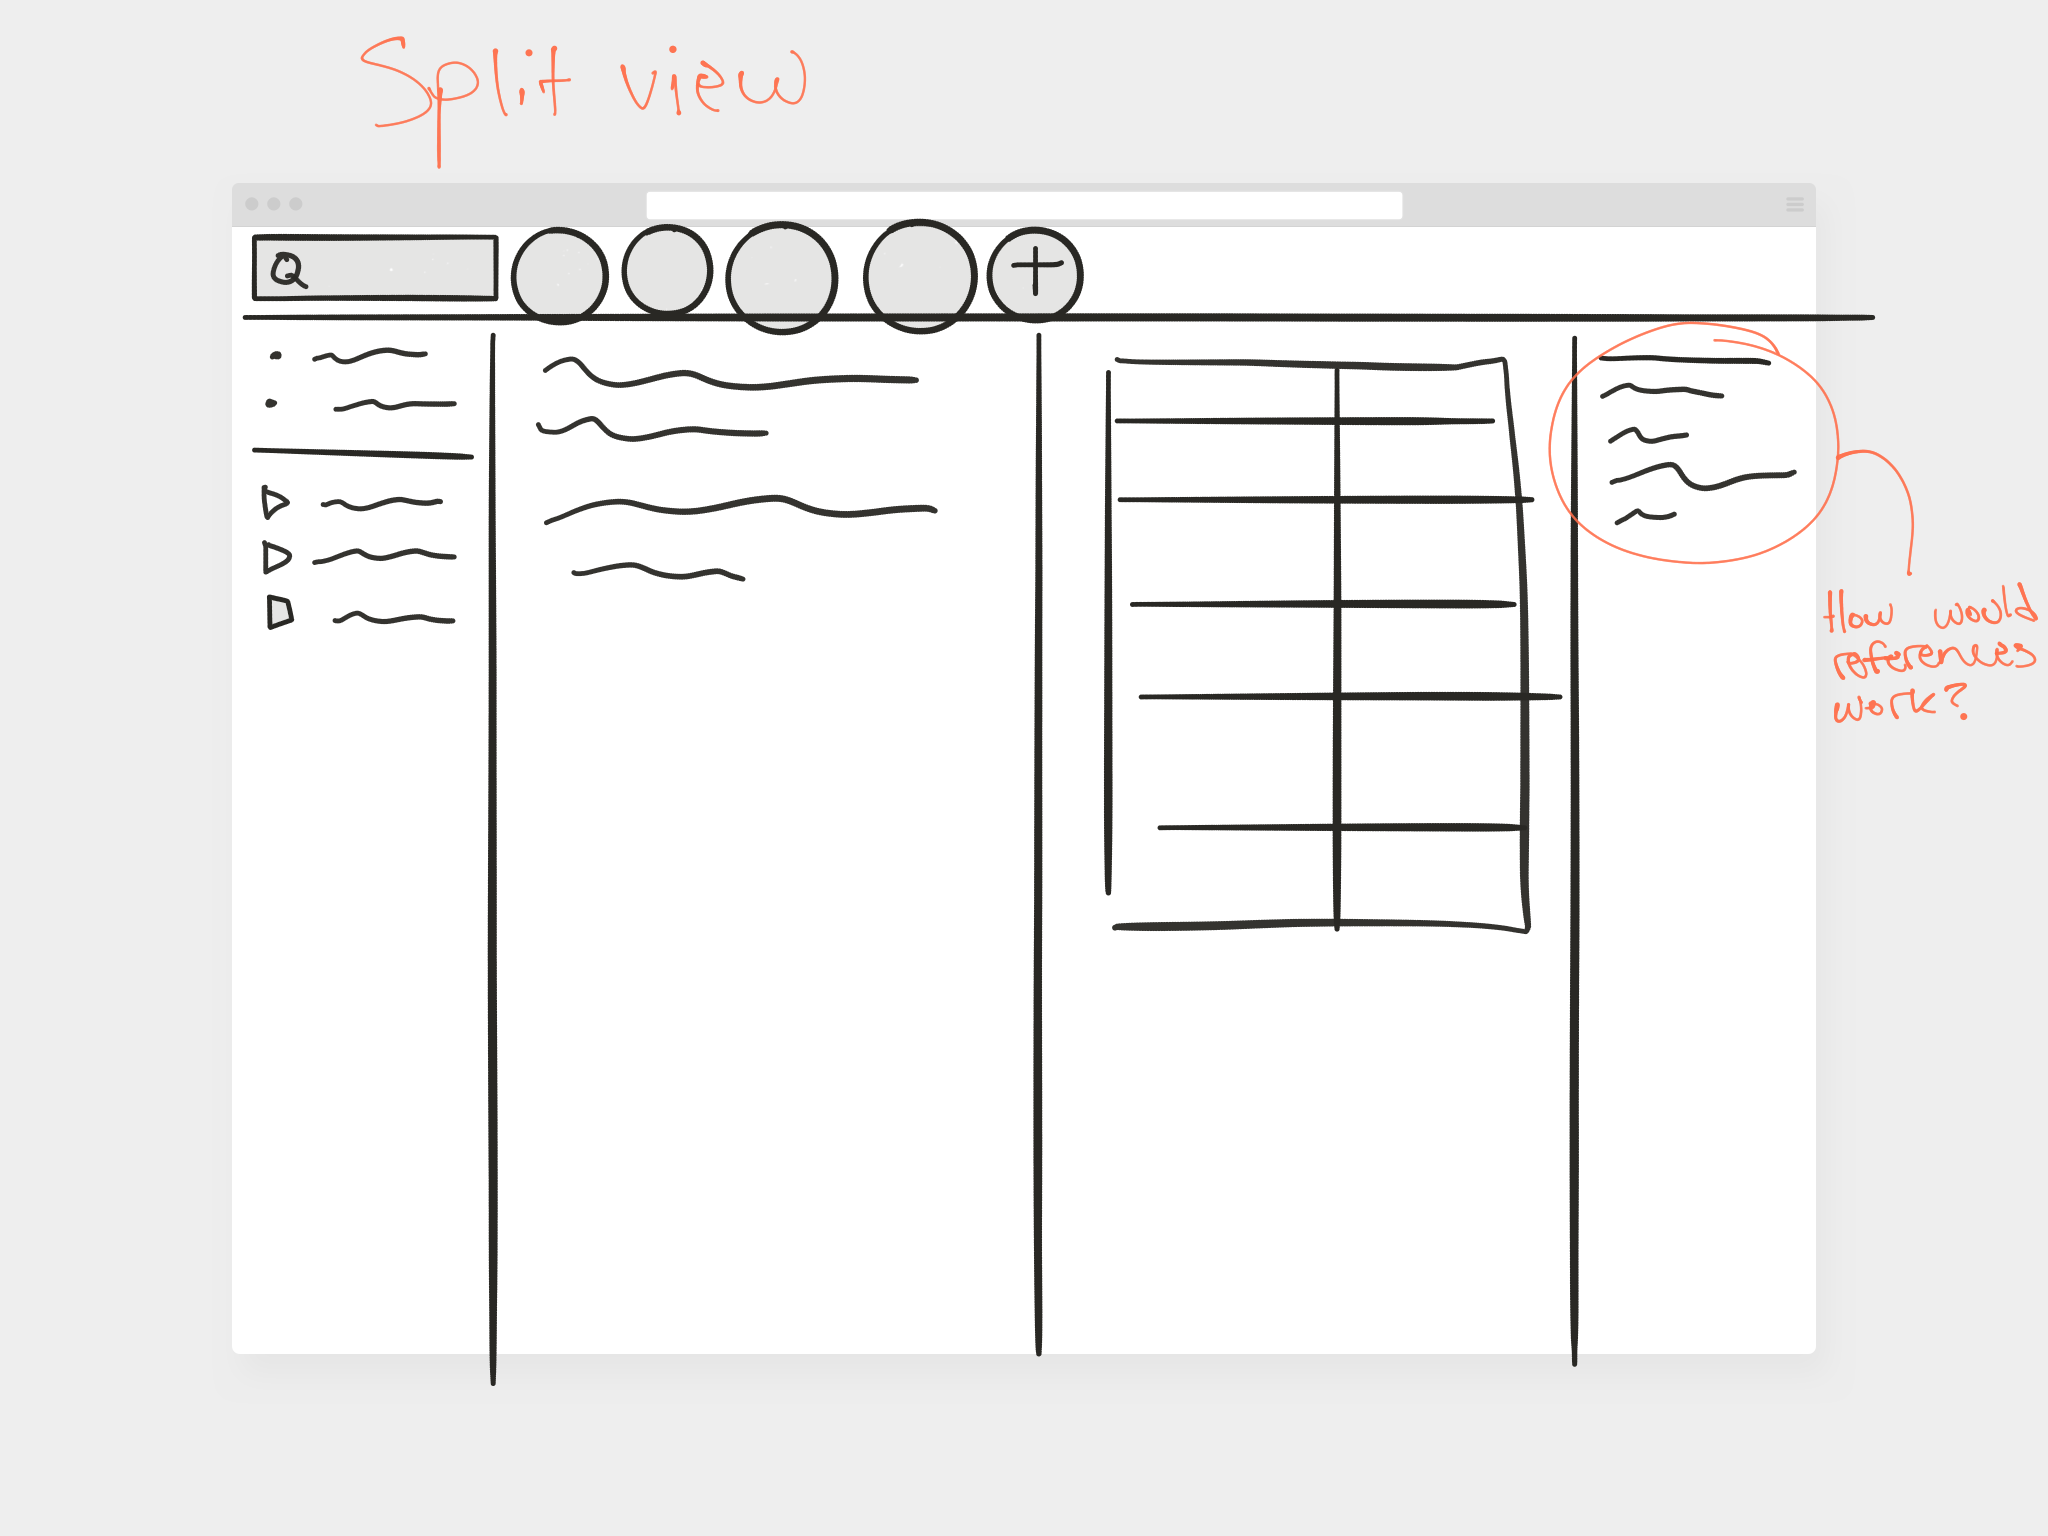 Split view
Q
How would
references
work?